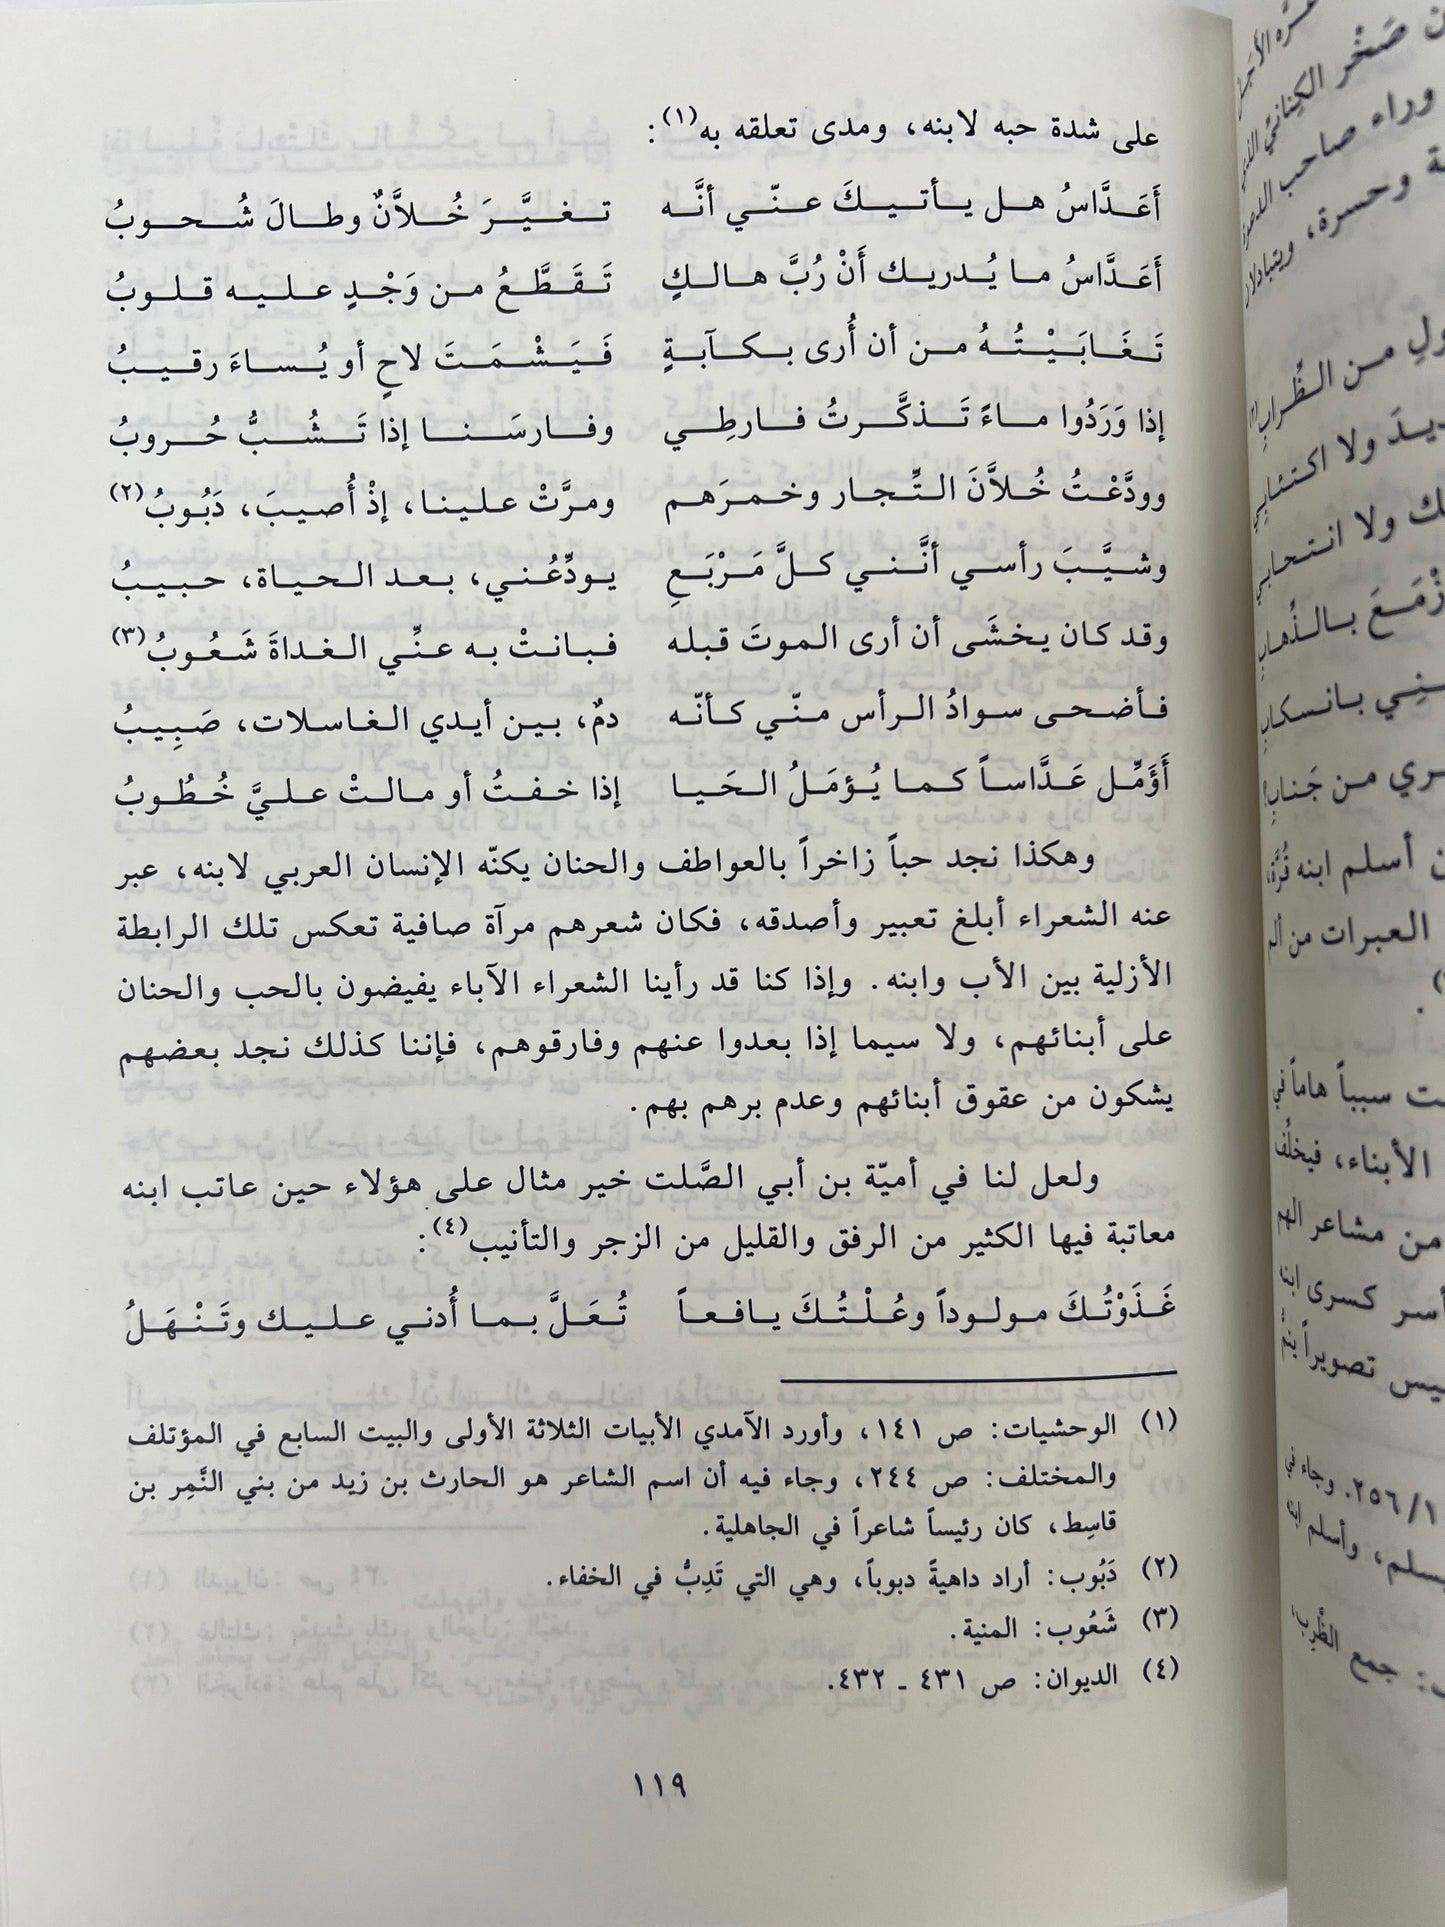 على شدة حبه لابنه، ومدى تعلقه به(١):
أَعَدَّاسُ هل يأتيكَ عنّي أنَّه تغيَّرَ خُلاَّنٌ وطالَ شُحوبُ
أَعَدَّاسُ ما يُدريك أَنْ رُبَّ هالكٍ تَقَطَّعُ من وَجْدٍ عليه قلوبُ
تَغَابَيْتُهُ من أن أُرى بكآبةٍ فَيَشْمَتَ لاحٍ أو يُساءَ رقيبُ
إذا وَرَدُوا ماءً تَذكَّرتُ فارطِي وفارسَنا إذا تَشُبُّ حُروبُ
وودَّعْتُ خُلاَّنَ التِّجار وخمرَهم ومرَّتْ علينا، إذْ أُصيبَ، دَبُوبُ(٢)
وشيَّبَ رأسي أنَّني كلَّ مَرْبَعِ يودِّعُني، بعد الحياة، حبيبُ
وقد كان يخشَى أن أرى الموتَ قبله فبانتْ به عنِّي الغداةَ شَعُوبُ(٣)
فأضحى سوادُ الرأس منّي كأنّه دمٌ، بين أيدي الغاسلات، صَبِيبُ
أَؤَمِّل عَدَّاساً كما يُؤمَلُ الحَيا إذا خفتُ أو مالتْ عليَّ خُطُوبُ
وهكذا نجد حباً زاخراً بالعواطف والحنان يكنّه الإنسان العربي لابنه، عبر
عنه الشعراء أبلغ تعبير وأصدقه، فكان شعرهم مرآة صافية تعكس تلك الرابطة
الأزلية بين الأب وابنه. وإذا كنا قد رأينا الشعراء الآباء يفيضون بالحب والحنان
على أبنائهم، ولا سيما إذا بعدوا عنهم وفارقوهم، فإننا كذلك نجد بعضهم
يشكون من عقوق أبنائهم وعدم برهم بهم.
ولعل لنا في أميّة بن أبي الصَّلت خير مثال على هؤلاء حين عاتب ابنه
معاتبة فيها الكثير من الرفق والقليل من الزجر والتأنيب(٤):
غَذَوْتُكَ مولوداً وعُلْتُكَ يافعاً تُعَلَّ بما أُدني عليك وتَنْهَلُ
(١) الوحشيات: ص ١٤١، وأورد الآمدي الأبيات الثلاثة الأولى والبيت السابع في المؤتلف
والمختلف: ص ٢٤٤، وجاء فيه أن اسم الشاعر هو الحارث بن زيد من بني النَّمِر بن
قاسِط، كان رئيساً شاعراً في الجاهلية.
(٢) دَبُوب: أراد داهيةً دبوباً، وهي التي تَدِبُّ في الخفاء.
(٣) شَعُوب: المنية.
(٤) الديوان: ص ٤٣١ ـ ٤٣٢.
١١٩
صَخْر الكِناني
وراء صاحب
ة وحسرة، ويتبادلان
من الظِّرابِ
ولا اكتئابي
ك ولا انتحابي
بالذِّهابِ
بانسكابِ
من جَنابِ
ن أسلم ابنه قُرَّة،
العبرات من ألم
ت سبباً هاماً في
الأبناء، فيخلِّف
من مشاعر الهم
أسر كسرى ابنه
يس تصويراً
١/ ٢٥٦. وجاء في
سلم، وأسلم ابنه
جمع الظَّرِب